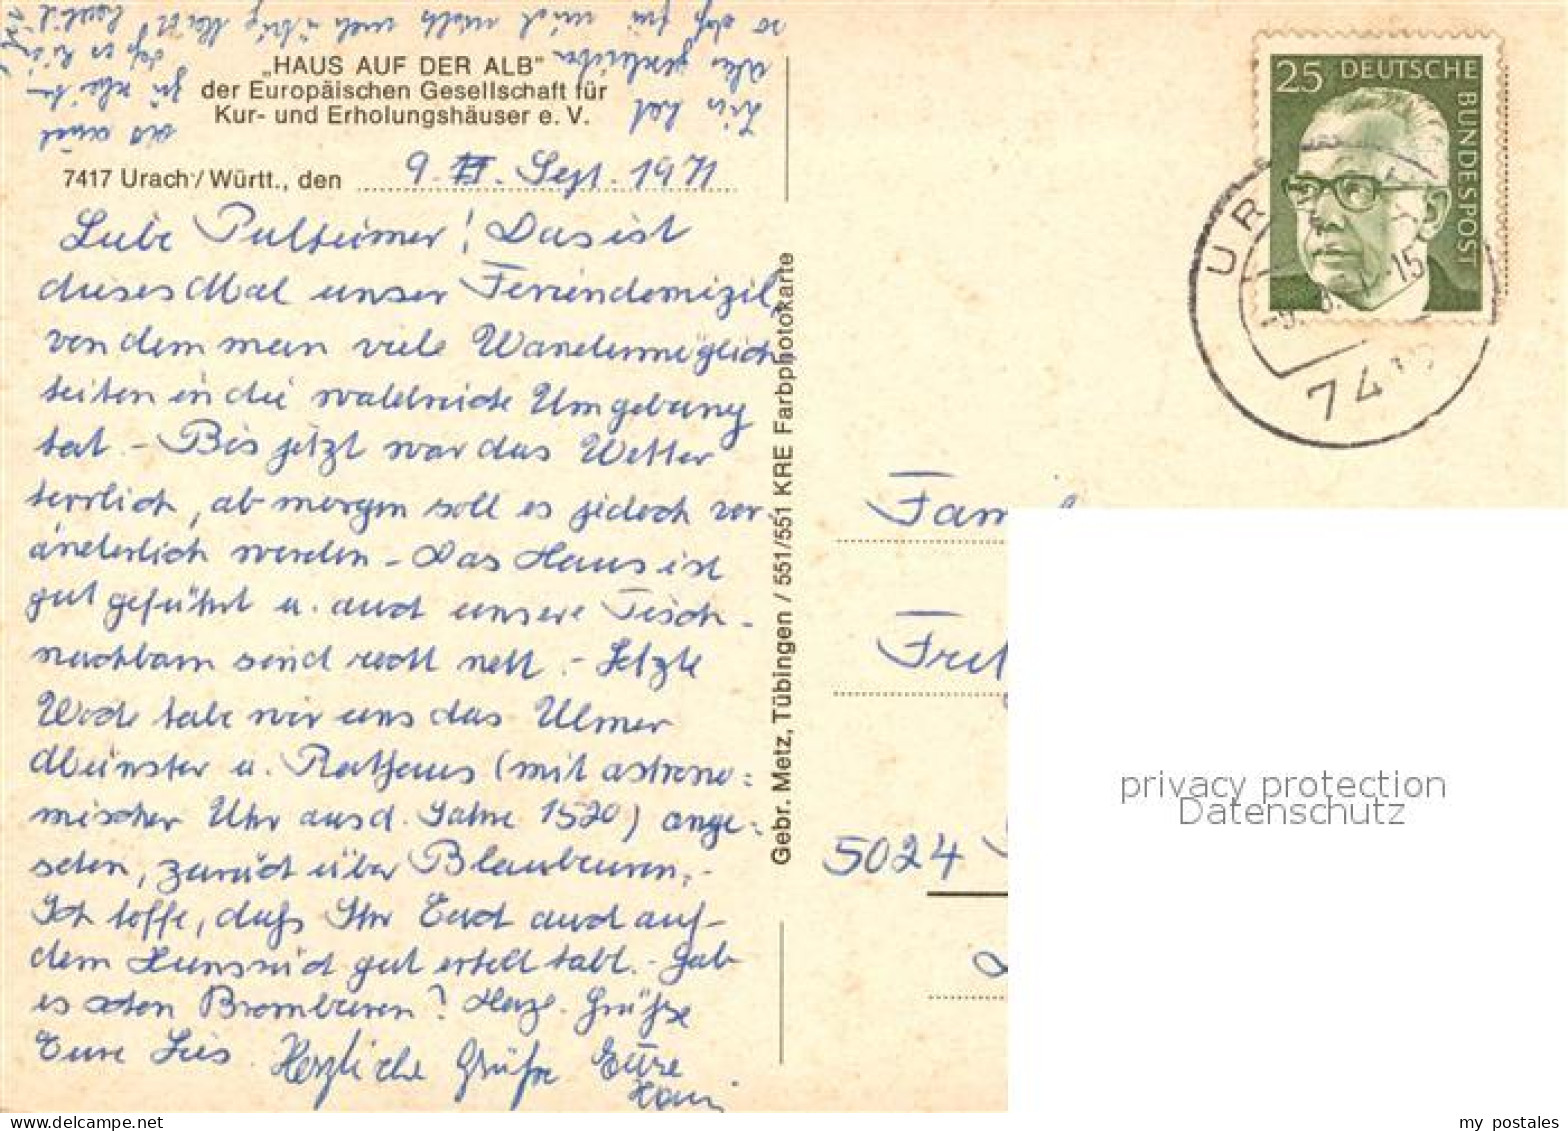 „HAUS AUF DER ALB"
der Europäischen Gesellschaft für
Kur- und Erholungshäuser e. V.
7417 Urach/Württ., den 9. Sept. 1971
Liebe Pulheimer! Das ist
dieses Mal unser Feriendomizil,
von dem man viele Wandermöglich
keiten in die waldreiche Umgebung
hat. - Bis jetzt war das Wetter
herrlich, ab morgen soll es jedoch ver-
änderlich werden - Das Haus ist
gut geführt u. auch unsere Tisch-
nachbarn sind recht nett. - Letzte
Woche habe wir uns das Ulmer
Münster u. Rathaus (mit astrono=
mischer Uhr aus d. Jahre 1520) ange=
sehen, zurück über Blaubeuren. -
Ich hoffe, daß Ihr Euch auch auf
dem Hunsrück gut erholt habt. - Gab
es schon Brombeeren? Herzl. Grüße
Eure Lies. Herzliche Grüße Eure
Hans
so daß für mich nichts mehr übrig
Lies hat
alles geschrieben
Gebr. Metz, Tübingen / 551/551 KRE Farbphotokarte
25 DEUTSCHE BUNDESPOST
UR
-9. -15
74
Fam
5024
privacy protection
Datenschutz
my postales